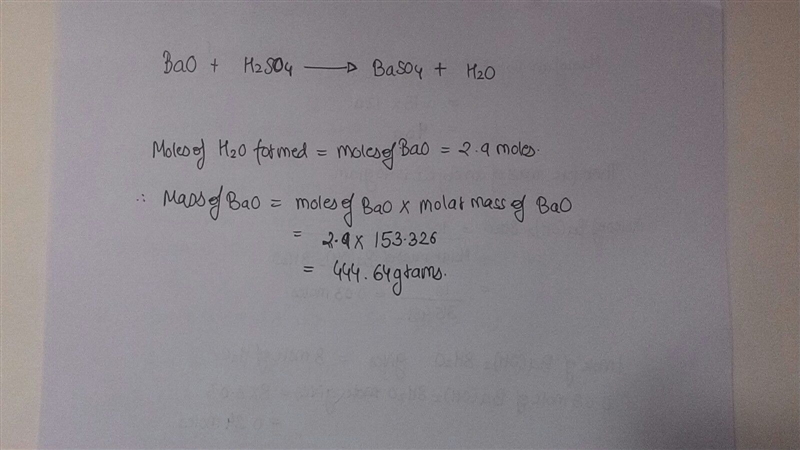 BaO + H2SO4 → BaSO4 + H2O
Moles of H2O formed = moles of BaO = 2.9 moles.
∴ Mass of BaO = moles of BaO × molar mass of BaO
= 2.9 × 153.326
= 444.64 grams.